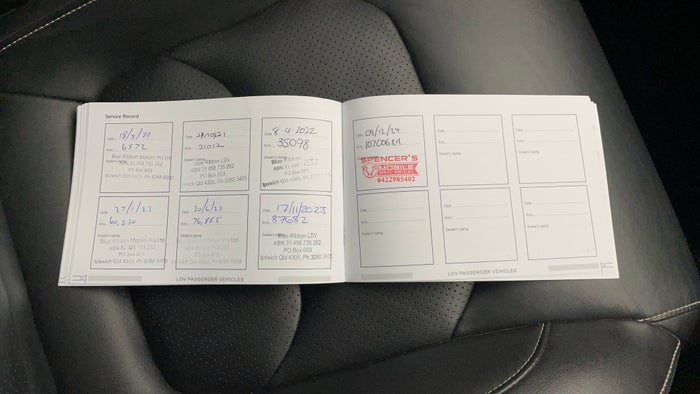 Service Record
Date 18/5/21
Kms 6572
Dealer's stamp
Blue Ribbon Motors Pty Ltd
ABN 31 458 735 262
PO Box 603
Ipswich Qld 4305, Ph
Date 27/10/21
Kms 21012
Dealer's stamp
Blue Ribbon LDV
ABN 31 458 735 262
PO Box 603
Ipswich Qld 4305, Ph 3280 3405
Date 8.4.2022
Kms 35098
Dealer's stamp
Blue Ribbon LDV
ABN 31 458 735 262
PO Box 603
Ipswich Qld 4305, Ph 3280
Date 27/1/23
Kms 60,230
Dealer's stamp
Blue Ribbon Motors Pty Ltd
ABN 31 458 735 262
PO Box 603
Ipswich Qld 4305, Ph
Date 30/6/23
Kms
Dealer's stamp
Blue Ribbon Motors Pty Ltd
ABN 31 458 735 262
PO Box 603
Ipswich Qld 4305, Ph
Date 17/11/2023
Kms 87682
Dealer's stamp
Blue Ribbon LDV
ABN 31 458 735 262
PO Box 603
Ipswich Qld 4305, Ph 3280 3405
LDV PASSENGER VEHICLES
Date 09/12/24
Kms
Dealer's stamp
SPENCER'S
MOBILE
0422985402
Date
Kms
Dealer's stamp
Date
Kms
Dealer's stamp
Date
Kms
Dealer's stamp
Date
Kms
Dealer's stamp
Date
Kms
Dealer's stamp
LDV PASSENGER VEHICLES